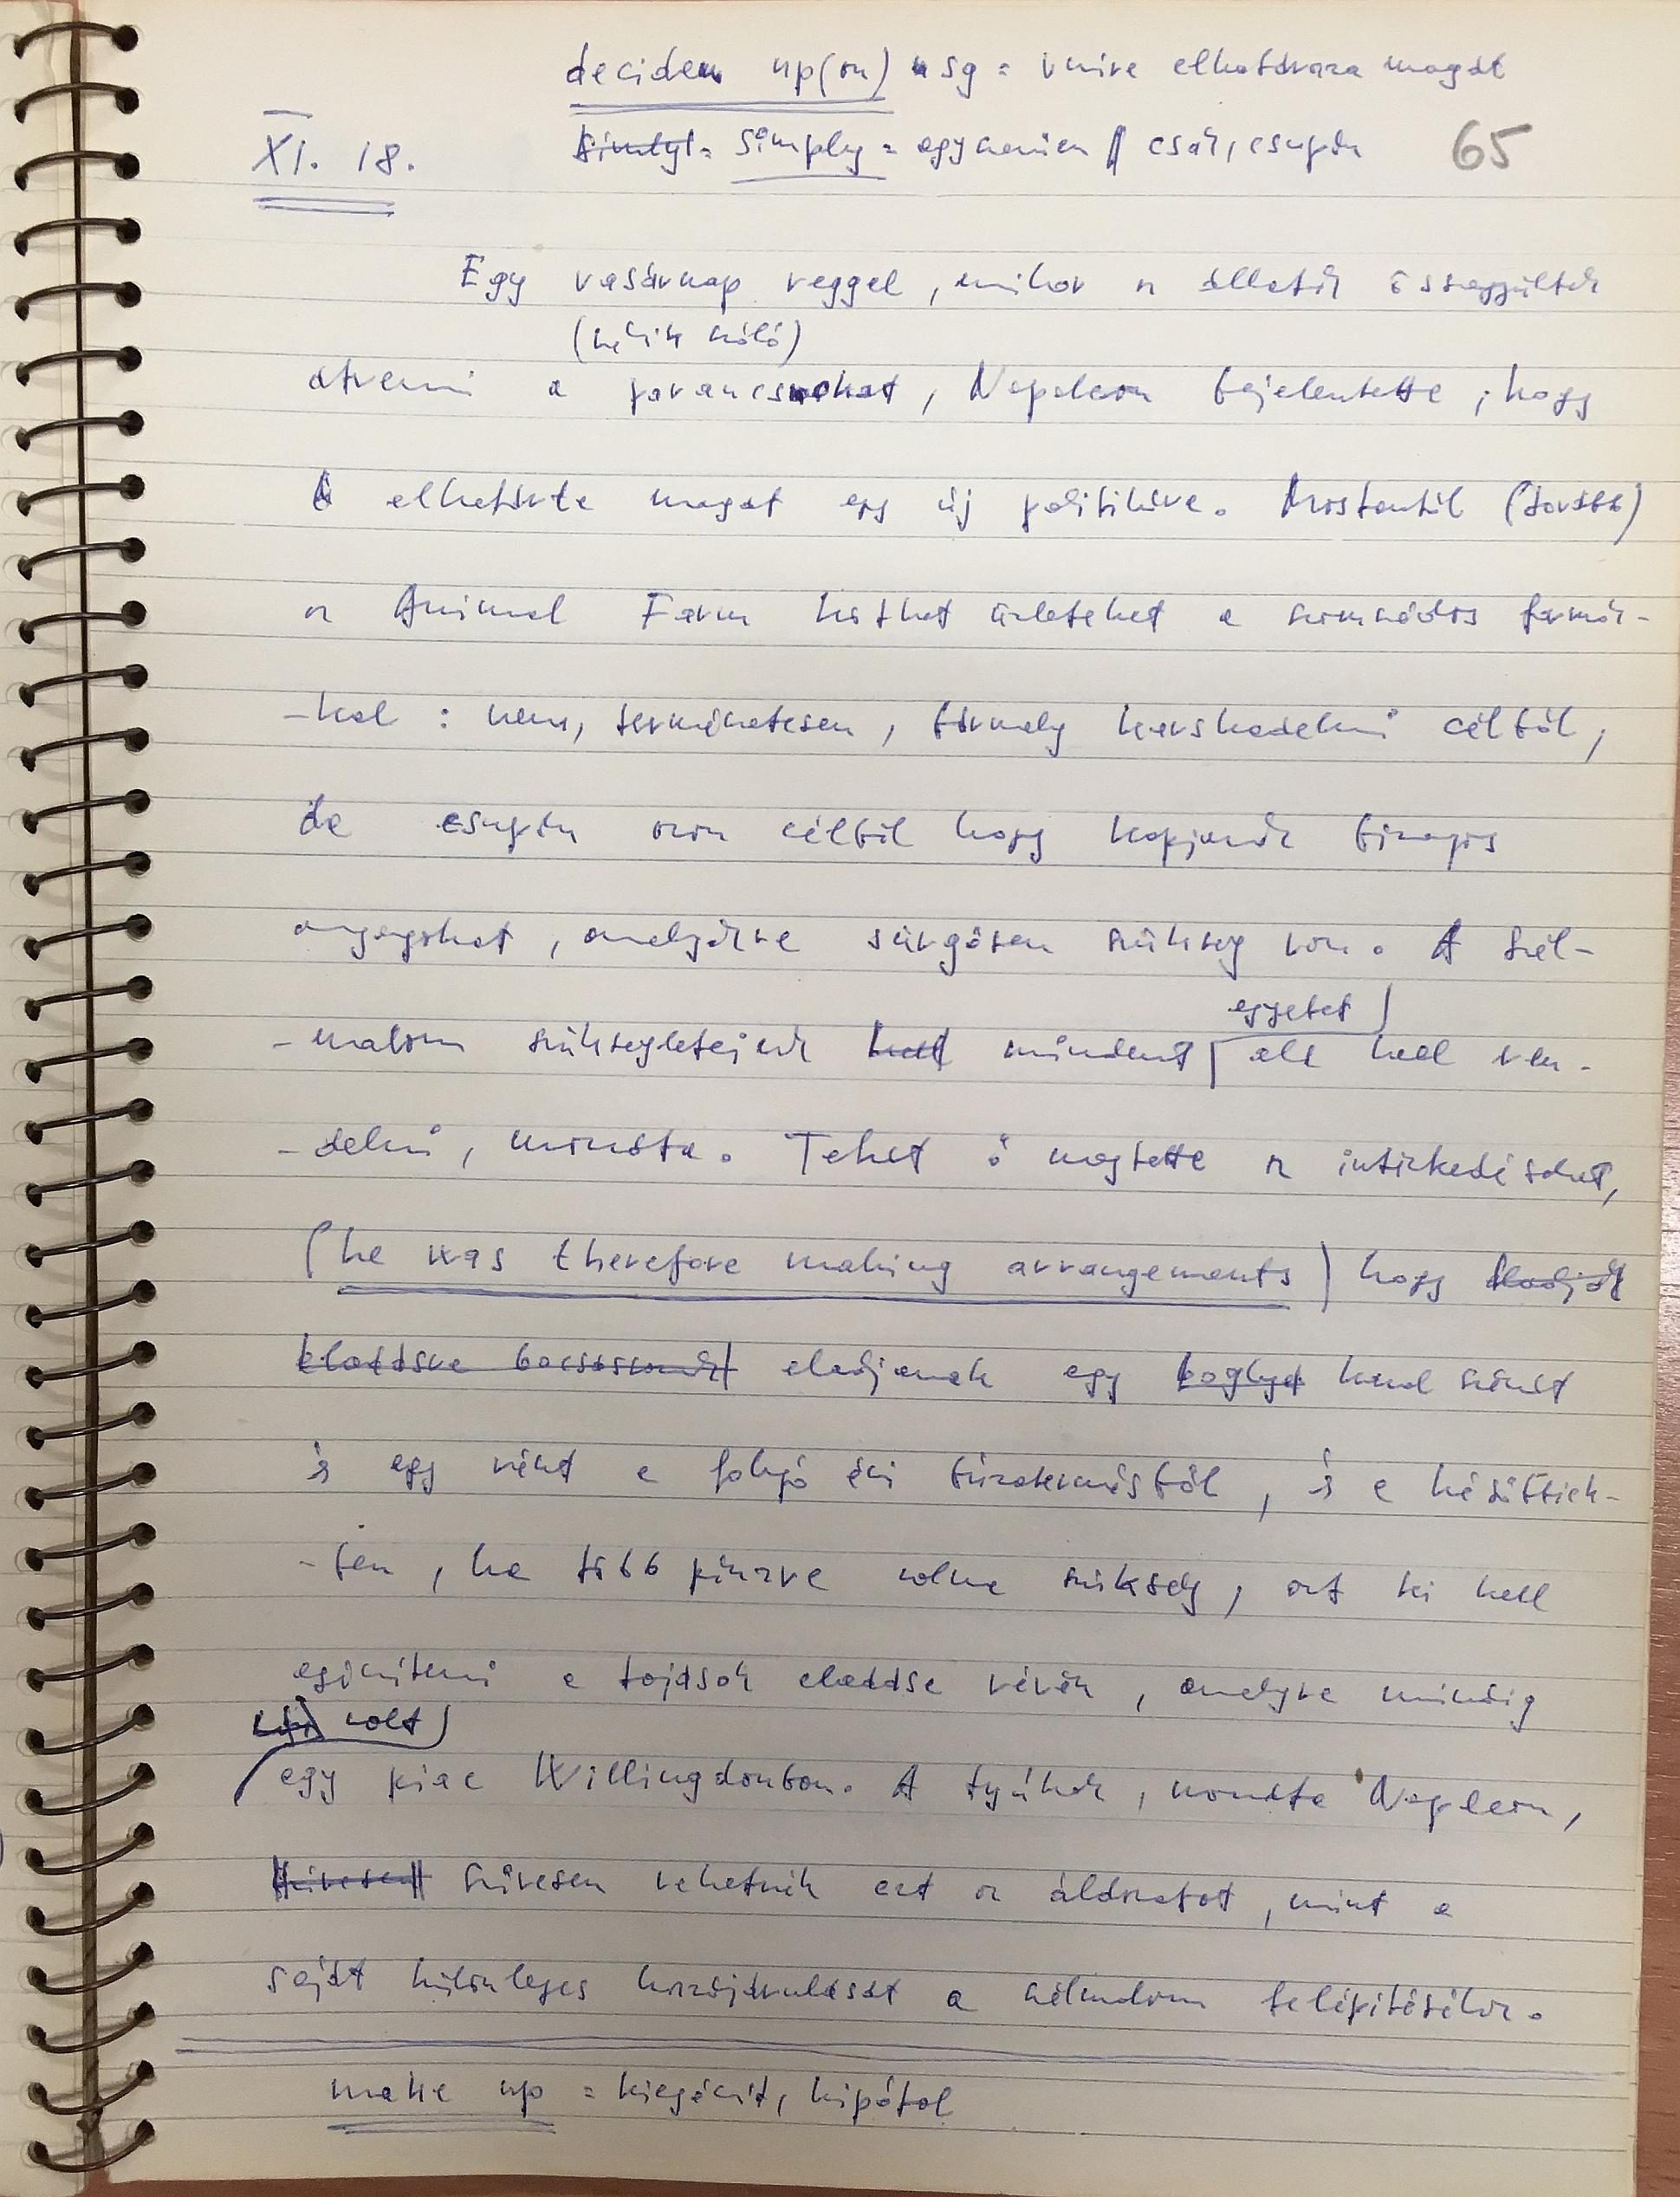 decide up(on) sg = vmire elhatározza magát
XI. 18.
simply = egyszerűen csak, csupán 65
Egy vasárnap reggel, mikor az állatok összegyűltek
átvenni a parancsokat, Napoleon bejelentette, hogy
ő elhatározta magát egy új politikára. Mostantól (tovább)
az Animal Farm köthet üzleteket a szomszédos farmok-
-kal : nem, természetesen, bármely kereskedelmi célból,
de csupán azon célból hogy kapjanak bizonyos
anyagokat, amelyekre sürgősen szükség van. A szél-
egyebet
-malom szükségleteinek mindent alá kell ren-
-delni, mondta. Tehát ő megtette az intézkedéseket,
(he was therefore making arrangements) hogy
eladjanak egy kazal szénát
és egy részt a folyó évi búzatermésből, és a későbbiek-
-ben, ha több pénzre volna szükség, azt ki kell
egészíteni a tojások eladása révén, amelyre mindig
volt
egy piac Willingdonban. A tyúkok, mondta Napoleon,
szívesen vehetnék ezt az áldozatot, mint a
saját különleges hozzájárulását a szélmalom felépítéséhez.
make up = kiegészít, kipótol